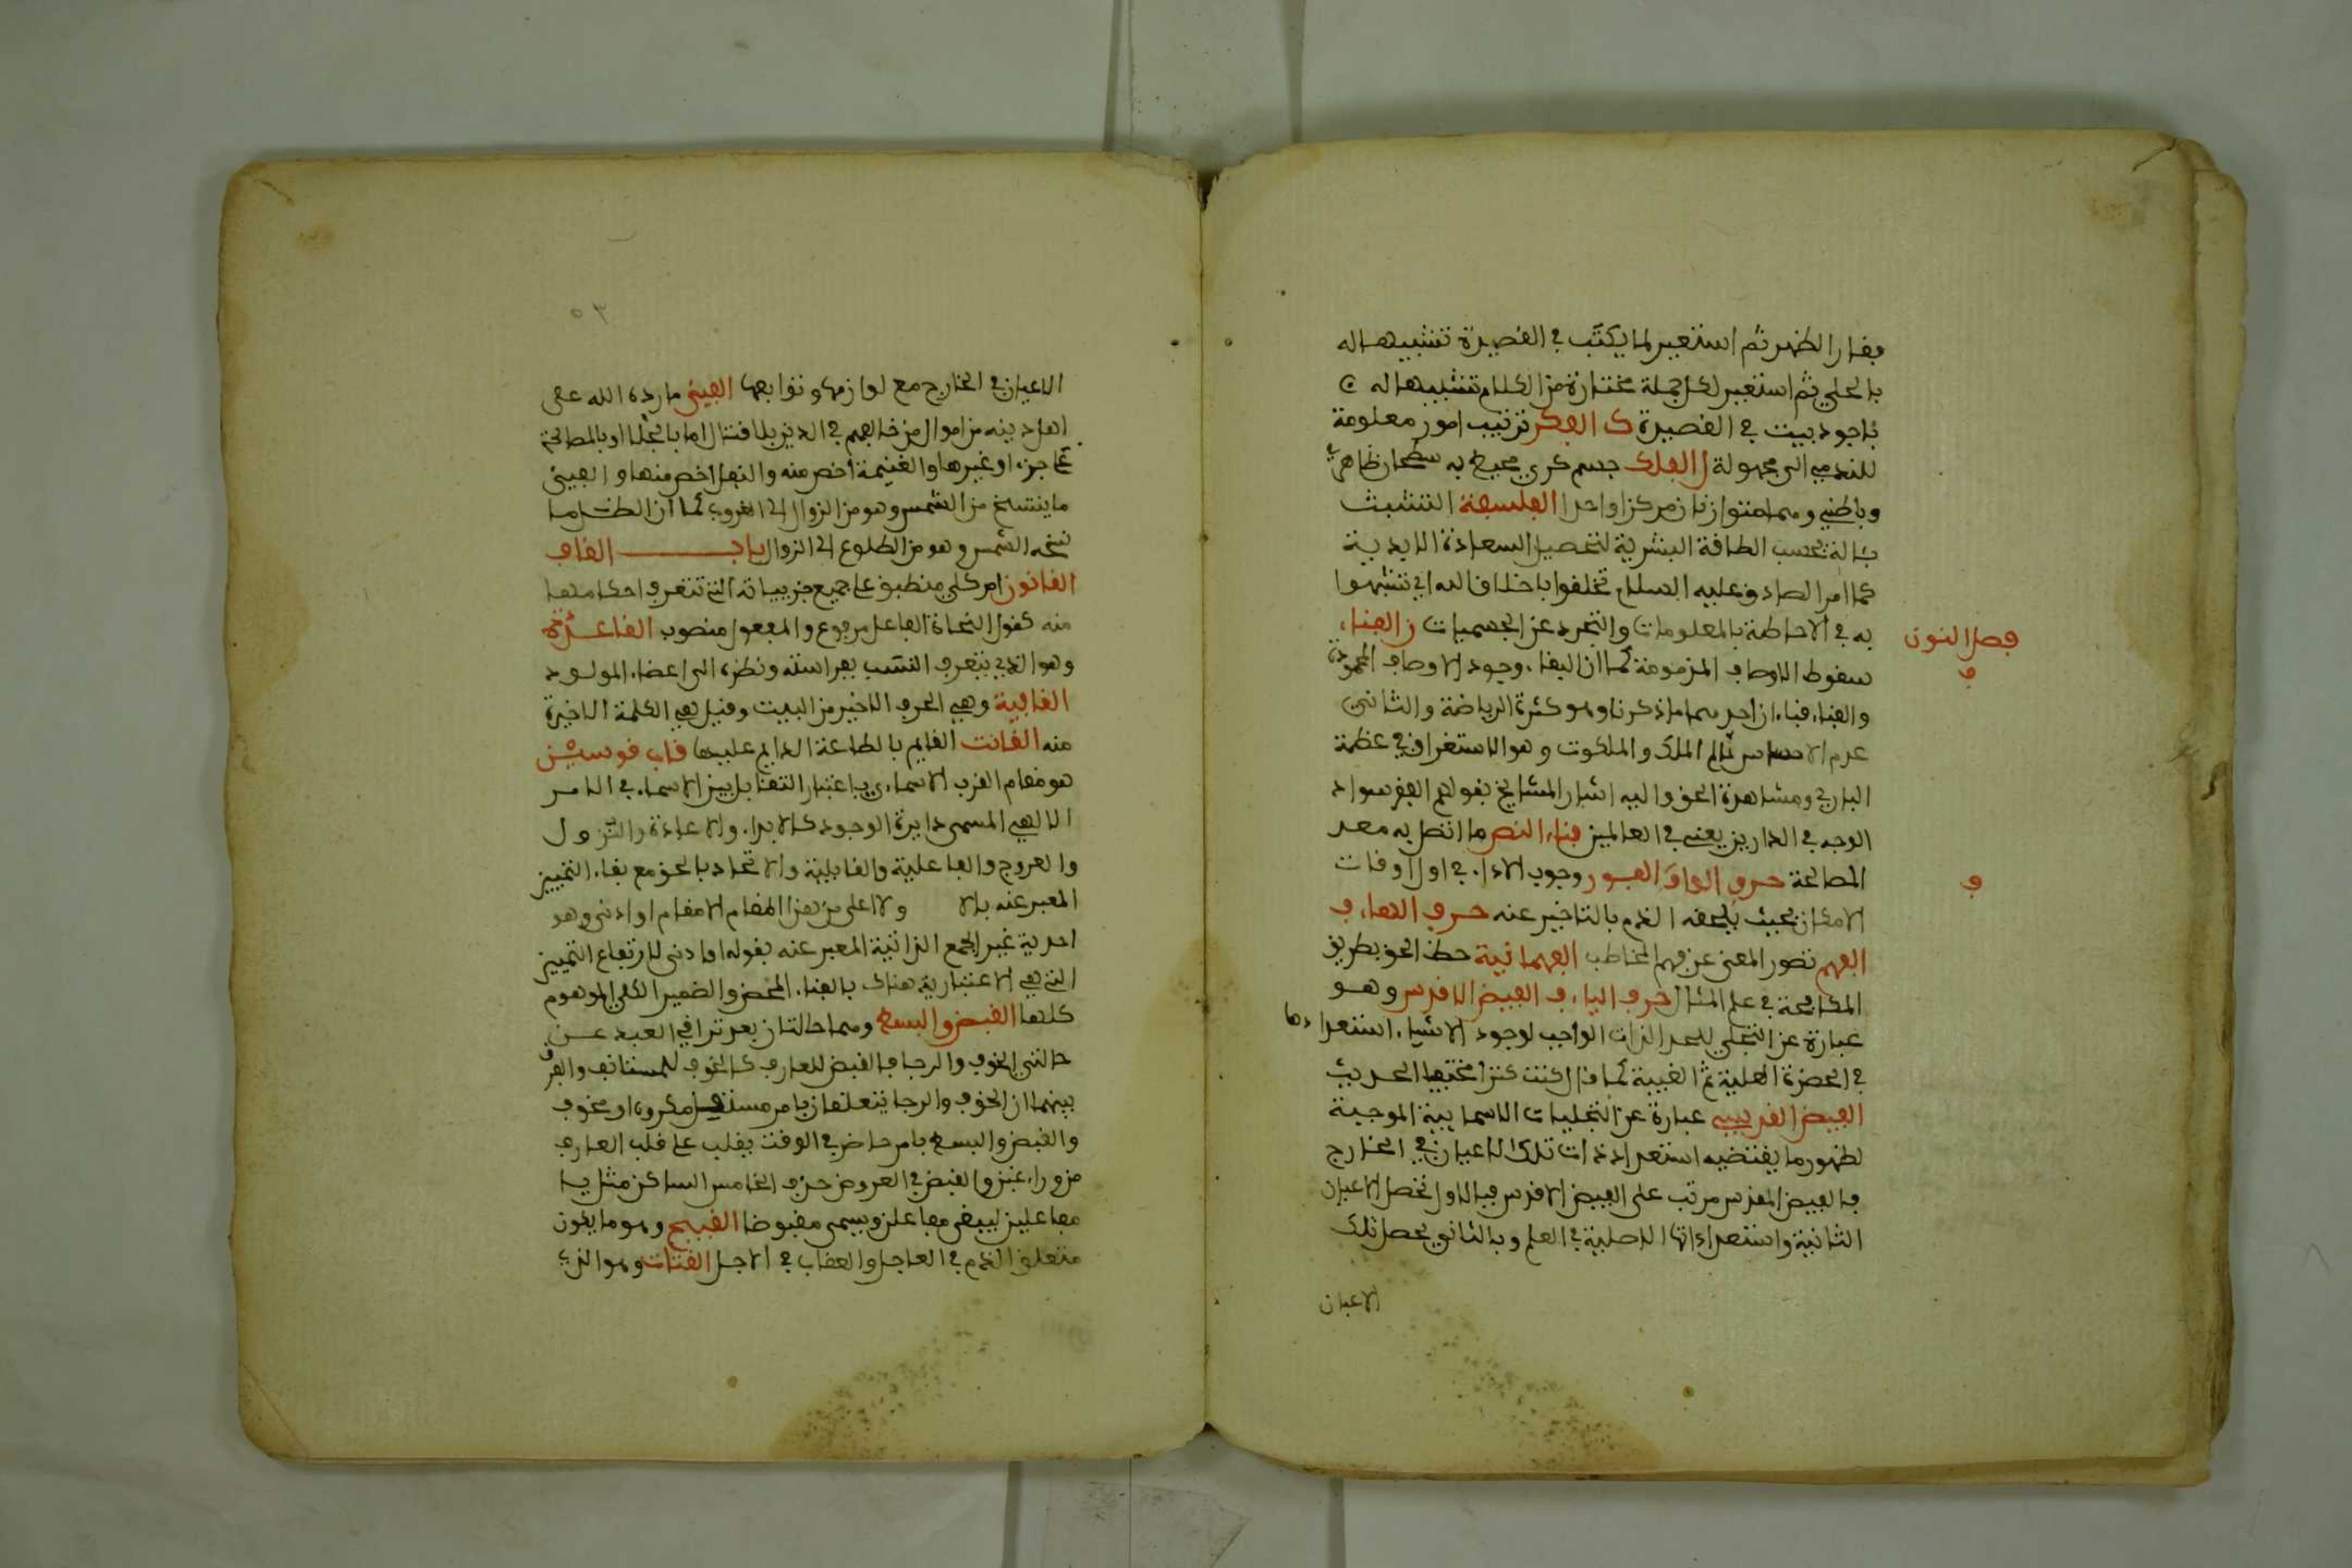 فقار الظهر ثم استعير لما يكتب في القصيدة تشبيها له
بالحلي ثم استعير لكل جملة مختارة من الكلام تشبيها له ج
باجود بيت في القصيدة ك الفكر ترتيب امور معلومة
للتدمي الى مجهولة ل الفلك جسم كري محيط به سطحان ظاهري
وباطني وهما متوازيان مركزا واحدا الفلسفة التشبث
بالة بحسب الطاقة البشرية لتحصيل السعادة الابدية
كما امر الصادق عليه السلام تخلقوا باخلاق الله اي تشبهوا
به في الاحاطة بالمعلومات والتجرد عن الجسميات ن الفناء
فصل النون
سقوط الاوصاف المذمومة كما ان البقاء وجود الاوصاف المحمودة
ف
والفناء فناءان احدهما ما ذكرنا وهو كثرة الرياضة والثاني
عدم الاحساس بعالم الملك والملكوت وهو الاستغراق في عظمة
الباري ومشاهدة الحق واليه اشار المشايخ بقولهم الفقر سواد
الوجه في الدارين يعني في العالمين فناء النصر ما اتصل به معد
المصالحة حرف الواو الفور وجوب الاداء في اول اوقات
ف
الامكان بحيث يلحقه الذم بالتاخير عنه حرف الهاء ف
الفهم تصور المعنى عن فهم المخاطب الفهمانية خطاب الحق بطريق
المكافحة في علم المثال حرف الياء ف الفيض الاقدس وهو
عبارة عن التجلي للحد الذات الواجب لوجود الاشياء استعداداتها
في الحضرة العلية ثم الغيبية كما قال كنت كنزا مخفيا الحديث
الفيض القديس عبارة عن التجليات الاسمايية الموجبة
لظهور ما يقتضيه استعدادات تلك الاعيان في الخارج
فالفيض المقدس مرتب على الفيض الاقدس فبالاول تحصل الاعيان
الثانية واستعداداتها الاصلية في العلم وبالثاني يحصل تلك
الاعيان
٥٣
الاعيان في الخارج مع لوازمها وتوابعها الفيئ ما رده الله على
اهل دينه من اموال من خالفهم في الدين بلا قتال اما بالجلا او بالمصالحة
على جزء او غيرها والغنيمة اخص منه والنفل اخص منها والفيئ
ما ينسخ من الشمس وهو من الزوال الى الغروب كما ان الظل ما
نسخه الشمس وهو من الطلوع الى الزوال باب القاف
القانون امر كلي منطبق على جميع جزيياته التي تتعرف احكامها
منه كقول النحاة الفاعل مرفوع والمفعول منصوب القاعدة
وهو الذي يتعرف النسب بفراسته ونظره الى اعضاء المولود
القافية وهي الحرف الاخير من البيت وقيل هي الكلمة الاخيرة
منه القانت القايم بالطاعة الدايم عليها قاب قوسين
هو مقام القرب الاسماءي باعتبار التقابل بين الاسماء في الامر
الالهي المسمى دايرة الوجود كالابداء والاعادة والنزول
والعروج والفاعلية والقابلية والاتحاد بالحق مع بقاء التمييز
المعبر عنه بالا ولا اعلى من هذا المقام الا مقام او ادنى وهو
احدية غير الجمع الذاتية المعبر عنه بقوله او ادنى لارتفاع التمييز
التي هي الاعتبارية هناك بالفناء المحض والضمير الكلي الموهوم
كلها القبض والبسط وهما حالتان بعد ترافي العبد عن
حالتي الخوف والرجا فالقبض للعارف كالخوف للمستانف والفرق
بينهما ان الخوف والرجا يتعلقان بامر مستقبل مكروه او مخوف
والقبض والبسط بامر حاضر في الوقت يغلب على قلب العارف
من وراء غيب والقبض في العروض حذف الخامس الساكن مثل يا
مفاعيلن ليبقى مفاعلن ويسمى مقبوضا القبيح وهو ما يكون
متعلق الذم في العاجل والعقاب في الاجل القتات وهو الذي